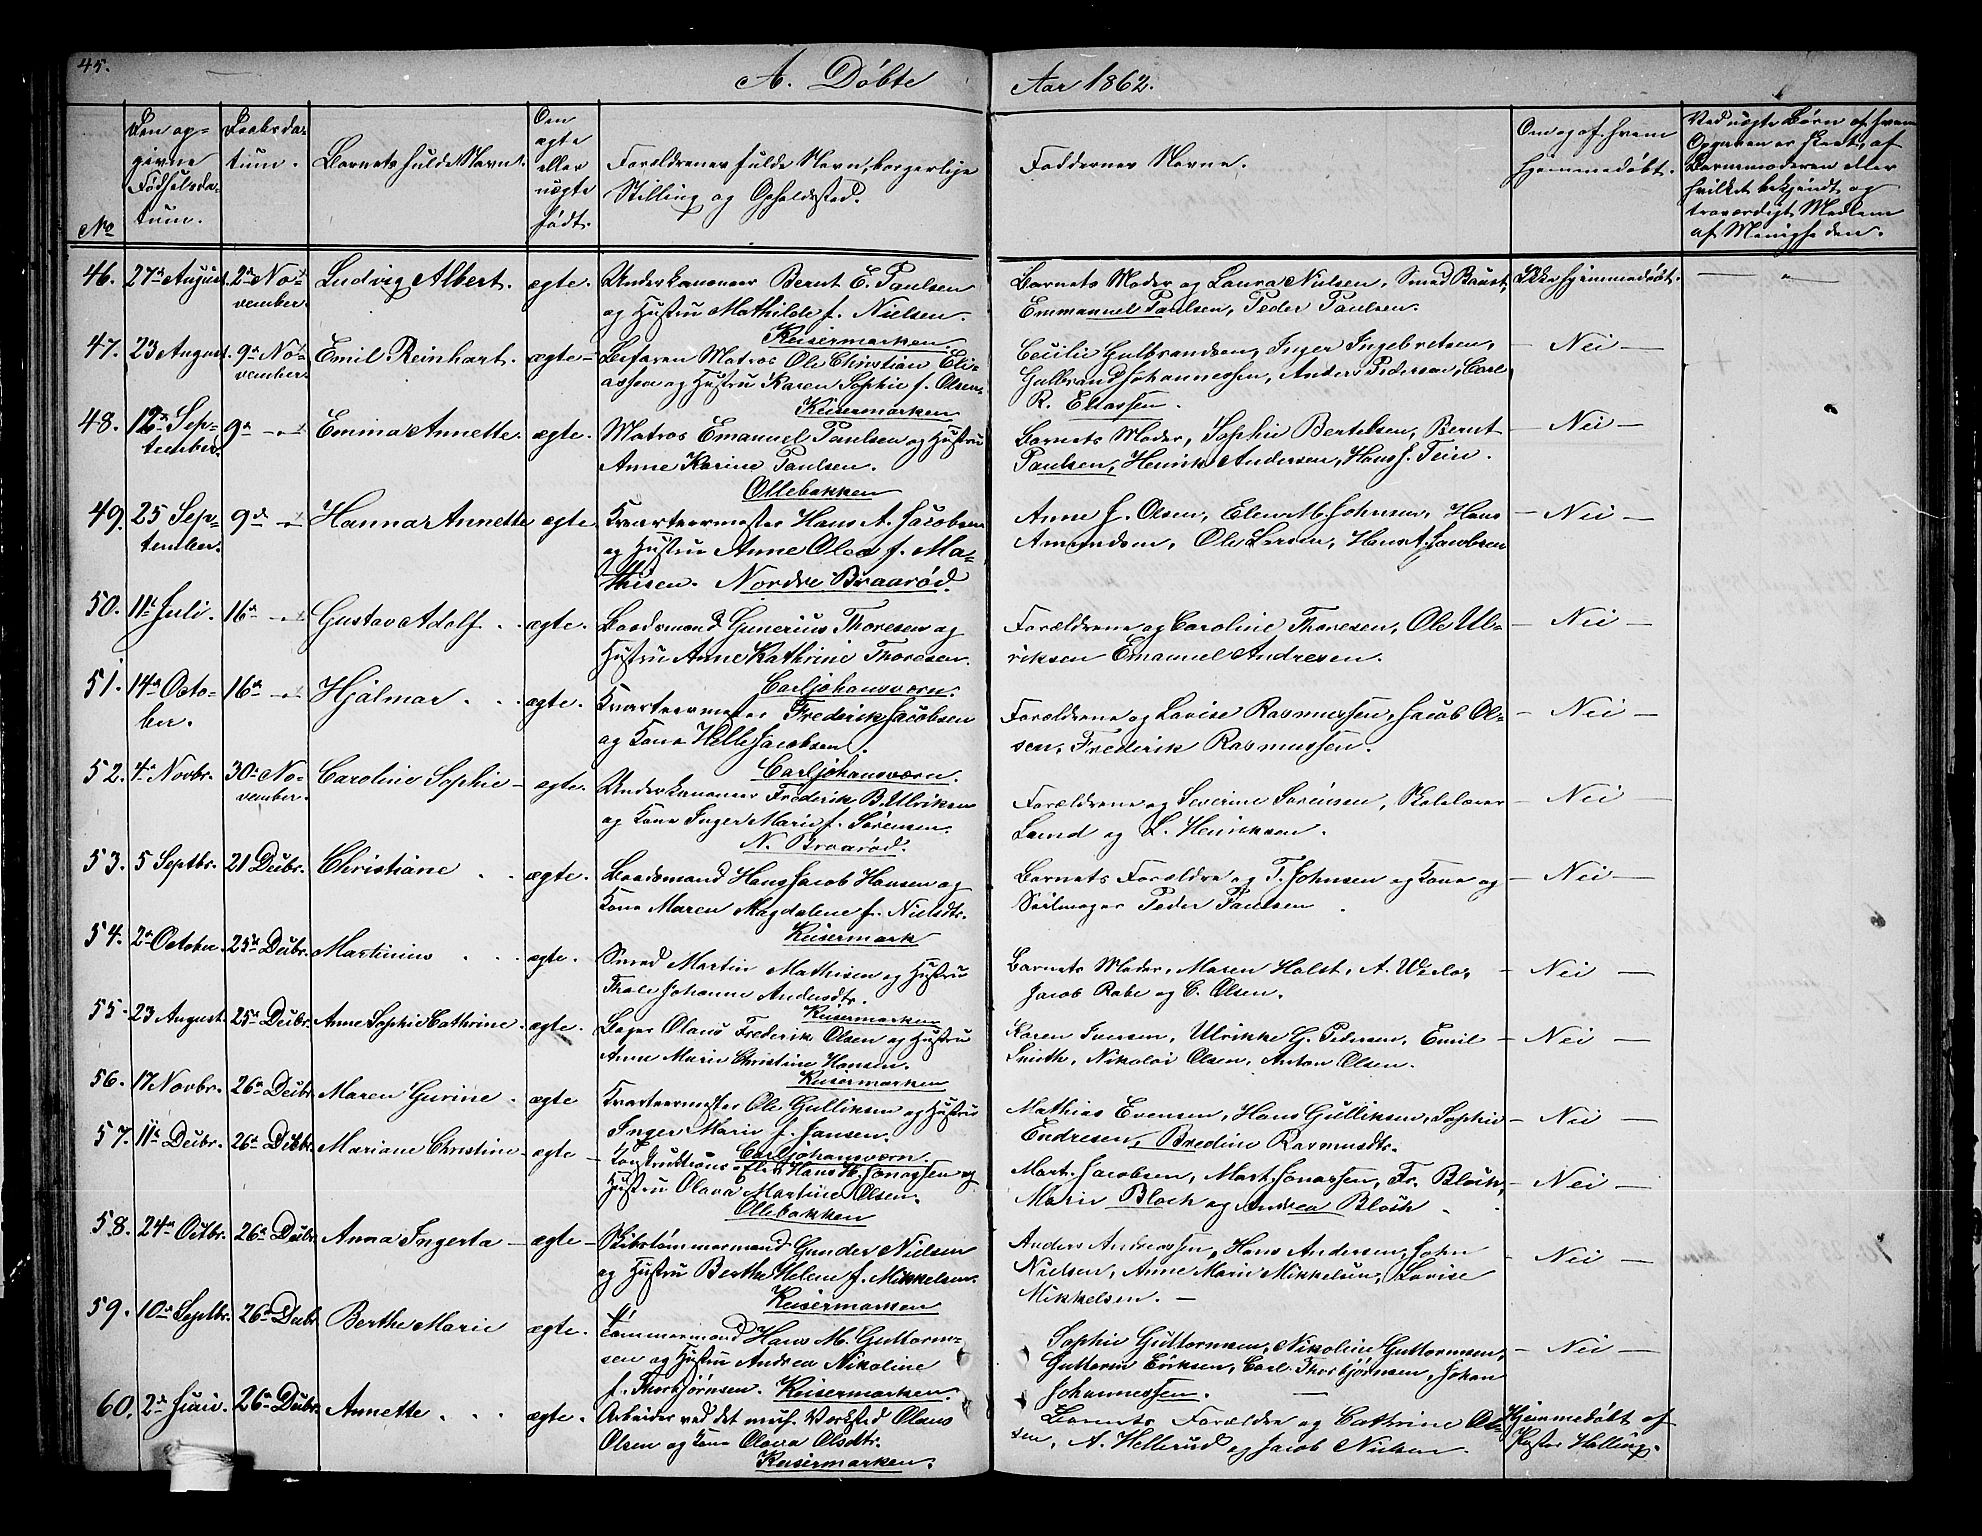 45.
A. Døbte
Aar 1862.
No
Den op-
givne
Fødselsda-
tum.
Daabsda-
tum.
Barnets fulde Navn.
Om
ægte
eller
uægte
født.
Forældrenes fulde Navn, borgerlige
Stilling og Opholdssted.
Faddernes Navne.
Om og af hvem
hjemmedøbt.
Ved uægte Børn af hvem
Opgaven er skeet, af
Barnemoderen eller
hvilket bekjendt og
troværdigt Medlem
af Menigheden.
46. 27de August. 2den No- Ludvig Albert. ægte. Underkanoneer Bernt E. Paulsen
vember. og Hustru Mathilde f. Nielsen.
Keisermarken.
Barnets Moder og Laura Nielsen, Smed Baust, Ikke hjemmedøbt.
Emmanuel Paulsen, Peder Paulsen.
47. 23 August. 9de No- Emil Reinhart. ægte - Befaren Matros Ole Christian Eli-
vember. assen og Hustru Karen Sophie f. Olsen.
Keisermarken
Cecilie Gulbrandsen, Inger Ingebretsen, - Nei -
Gulbrand Johannessen, Anders Pedersen, Carl
R. Eliassen.
48. 12te Sep- 9de Emma Annette. ægte. Matros Emanuel Paulsen og Hustru
tember. Anne Karine Paulsen.
Ollebakken
Barnets Moder, Sophie Bertelsen, Bernt - Nei -
Paulsen, Henrik Andersen, Hans J. Teien.
49. 25 Sep- 9de Hanna Annette ægte. Kvarteermester Hans A. Jacobsen
tember. og Hustru Anne Olea f. Ma-
thisen. Nordre Braarød.
Anne J. Olsen, Elen M. Johnsen, Hans - Nei -
Amundsen, Ole Larsen, Hans A. Jacobsen
50. 11te Juli. 16de Gustav Adolf . . ægte. Baadsmand Gunerius Thoresen og
Hustru Anne Kathrine Thoresen.
Carljohansværn.
Forældrene og Caroline Thoresen, Ole Ul- - Nei -
riksen Emanuel Andresen.
51. 14de Octo- 16de Hjalmar . . ægte. Kvarteermester Frederik Jacobsen
ber. og Kone Helle Jacobsen.
Carljohansværn.
Forældrene og Lovise Rasmussen, Jacob Ol- - Nei -
sen, Frederik Rasmussen.
52. 4de Novbr. 30te No- Caroline Sophie - ægte. Underkanoneer Frederik B. Ulriksen
vember. og Kone Inger Marie f. Sørensen.
N. Braarød.
Forældrene og Severine Sørensen, Skolelærer - Nei -
Lund og L. Henriksen.
53. 5 Septbr. 21 Decbr. Christiane . . ægte. Baadsmand Hans Jacob Hansen og
Kone Maren Magdalene f. Nielsdtr.
Keisermark
Barnets Forældre og T. Johnsen og Kone og - Nei -
Seilmager Peder Paulsen.
54. 2de October. 25de Decbr. Martinius . . . ægte. Smed Martin Mathisen og Hustru
Thale Johanne Andersdtr.
Keisermarken
Barnets Moder, Maren Holst, A. - Nei -
Jacob Rabe og C. Olsen.
55. 23 August. 25de Decbr. Anne Sophie Cathrine. ægte. Bager Olaus Frederik Olsen og Hustru
Anne Marie Christine Hansen.
Keisermarken
Karen Iversen, Ulrikke G. Pedersen, Emil - Nei -
Smith, Nikolai Olsen, Anton Olsen.
56. 17 Novbr. 26de Decbr. Maren Gurine. ægte Kvarteermester Ole Gulliksen og Hustru
Inger Marie f. Jansen.
Carljohansværn.
Mathias Evensen, Hans Gulliksen, Sophie - Nei -
Endresen, Bredine Rasmusdtr.
57. 11te Decbr. 26de Decbr. Mariane Christine - ægte - Konstruktions Hans H. Jonassen og
Hustru Olava Martine Olsen.
Ollebakken
Mart. Jacobsen, Mart. Jonassen, Fr. Bloch, - Nei -
Marie Bloch og Andrea Bloch.
58. 24de Octbr. 26de Decbr. Anna Ingerta - ægte - Skibstømmermand Gunder Nielsen
og Hustru Berthe Helene f. Mikkelsen.
Keisermarken
Anders Andreassen, Hans Andersen, John - Nei -
Nielsen, Anne Marie Mikkelsen, Lovise
Mikkelsen. -
59. 10de Septbr. 26de Decbr. Berthe Marie ægte. Tømmermand Hans M. Guttorm-
sen og Hustru Andrea Nikoline
f. Thorbjørnsen. Keisermarken.
Sophie Guttormsen, Nikoline Guttormsen, - Nei -
Guttorm Eriksen, Carl Thorbjørnsen, Johan
Johannessen.
60. 2de Juni. 26de Decbr. Annette . . . ægte. Arbeider ved det mek. Verksted Olaus
Olsen og Kone Olava Olsdtr.
Keisermarken.
Barnets Forældre og Cathrine Ol- Hjemmedøbt af
sen, A. Hellerud og Jacob Nielsen. Kaster Halling.